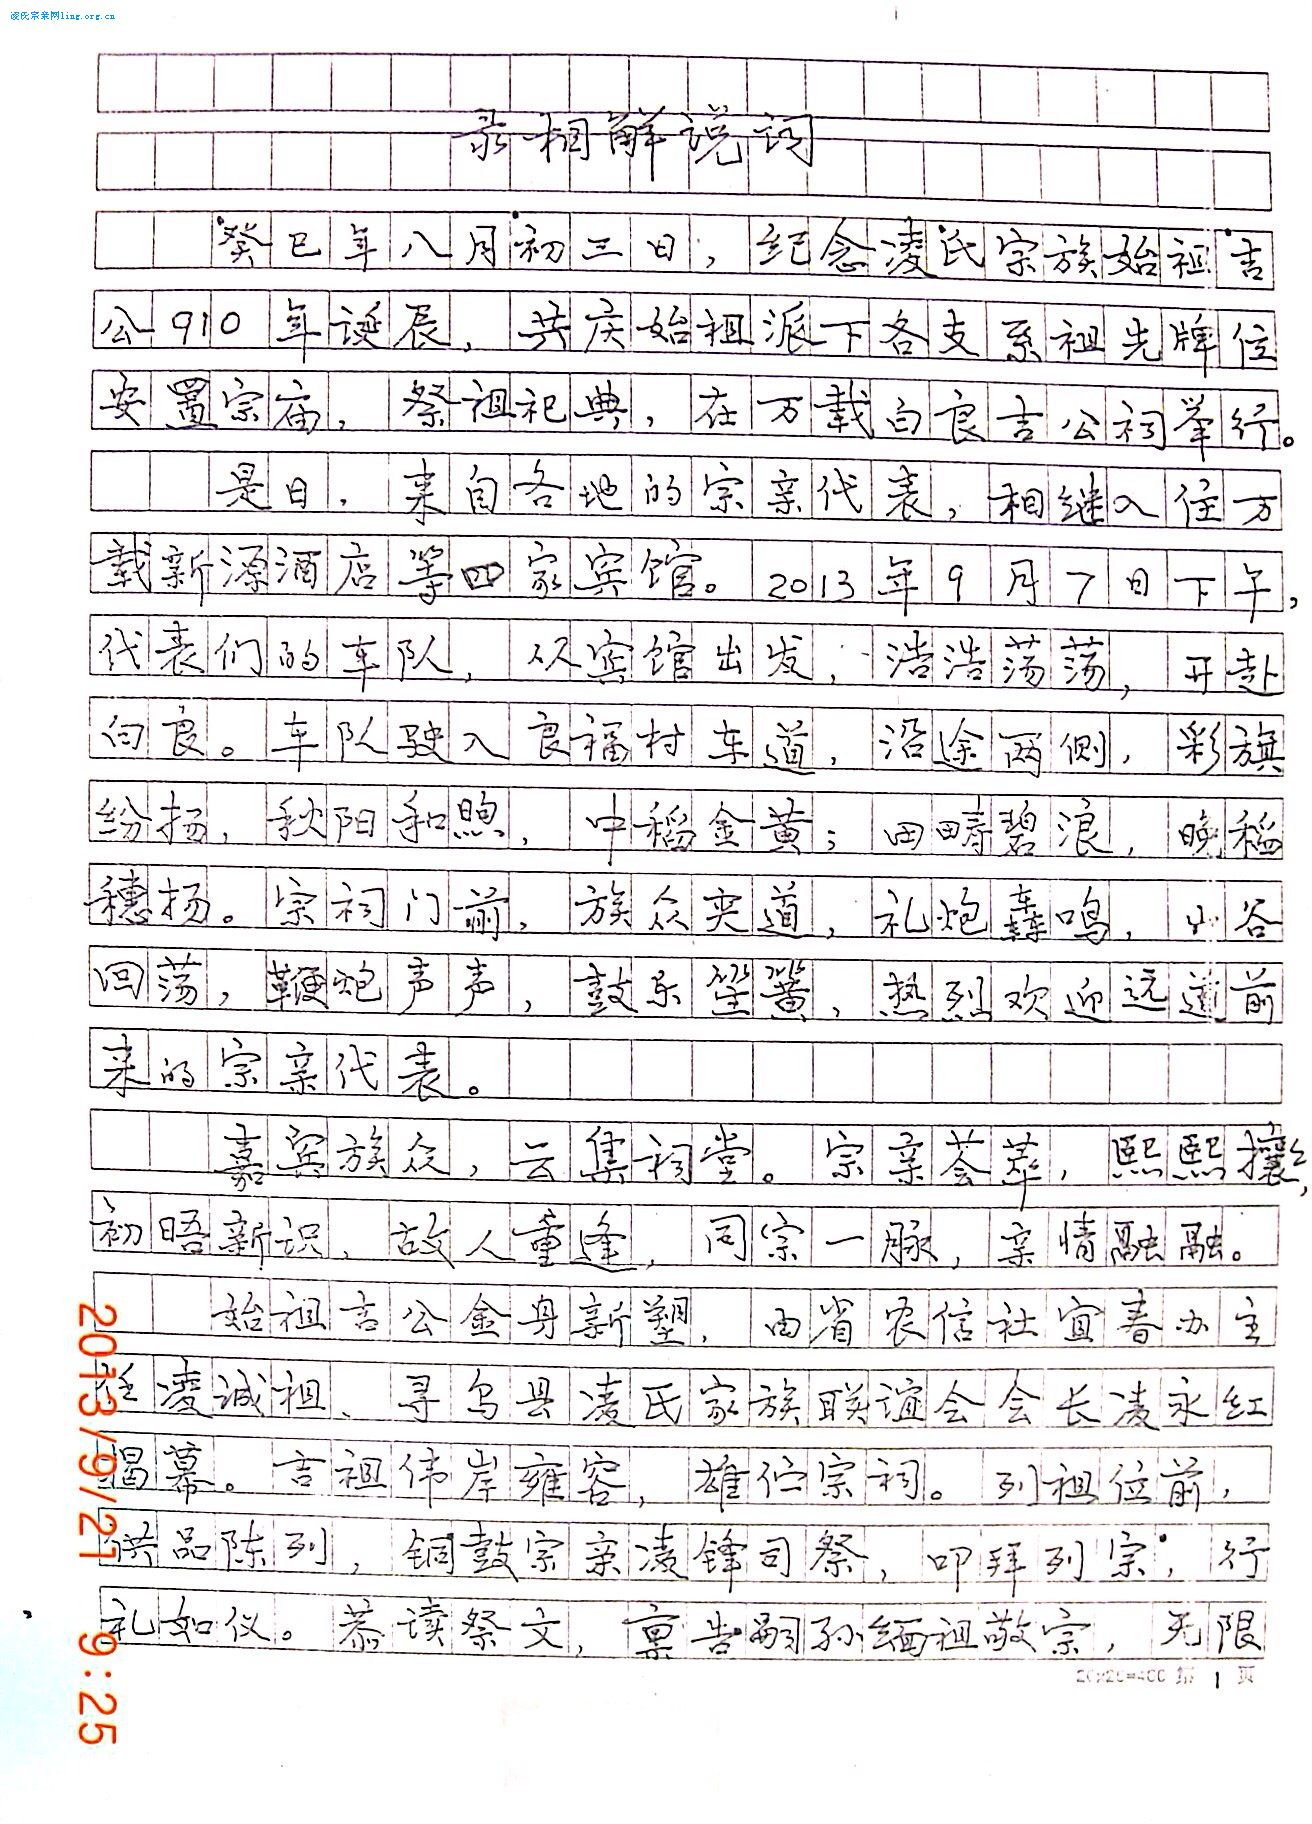 凌氏宗亲网ling.org.cn
录相解说词
癸巳年八月初三日，纪念凌氏宗族始祖吉
公910年诞辰，共庆始祖派下各支系祖先牌位
安置宗庙，祭祖祀典，在万载白良吉公祠举行。
是日，来自各地的宗亲代表，相继入住万
载新源酒店等四家宾馆。2013年9月7日下午，
代表们的车队，从宾馆出发，浩浩荡荡，开赴
白良。车队驶入良福村车道，沿途两侧，彩旗
纷扬，秋阳和煦，中稻金黄；田畴碧浪，晚稻
穗扬。宗祠门前，族众夹道，礼炮轰鸣，山谷
回荡，鞭炮声声，鼓乐笙簧，热烈欢迎远道前
来的宗亲代表。
嘉宾族众，云集祠堂。宗亲荟萃，熙熙攘攘，
初晤新识，故人重逢，同宗一脉，亲情融融。
始祖吉公金身新塑，由省农信社宜春办主
任凌诚祖、寻乌县凌氏家族联谊会会长凌永红
揭幕。吉祖伟岸雍容，雄伫宗祠。列祖位前，
供品陈列，铜鼓宗亲凌锋司祭，叩拜列宗，行
礼如仪。恭读祭文，禀告嗣孙缅祖敬宗，无限
20×20=400 第 1 页
2013/9/21 9:25